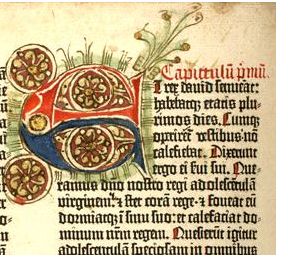 Capitulū p̄mū.
Et rex david senuerat:
habebatq; etatis plu-
rimos dies. Cumq;
operiret̄ vestibus· nō
calefiebat. Dixerunt
ergo ei servi sui. Que-
ramus dn̄o nostro regi adolescētulā
virginem· & stet corā rege· & foveat eū
dormiatq; ī sinu suo: et calefaciat do-
minum nr̄m regem. Quesierūt igitur
adolescentulā speciosam in omnibus